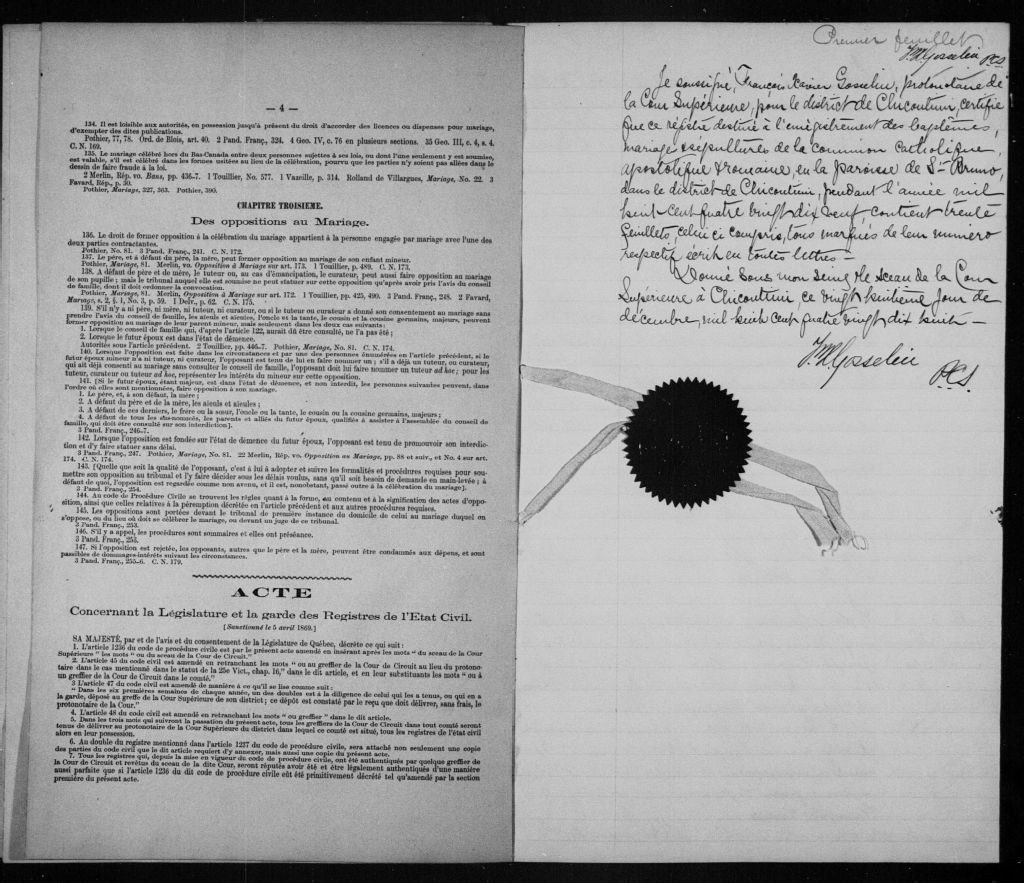 — 4 —
134. Il est loisible aux autorités, en possession jusqu'à présent du droit d'accorder des licences ou dispenses pour mariage,
d'exempter des dites publications.
Pothier, 77, 78. Ord. de Blois, art. 40. 2 Pand. Franç., 324. 4 Geo. IV, c. 76 en plusieurs sections. 35 Geo. III, c. 4, s. 4.
C. N. 169.
135. Le mariage célébré hors du Bas-Canada entre deux personnes sujettes à ses lois, ou dont l'une seulement y est soumise,
est valable, s'il est célébré dans les formes usitées au lieu de la célébration, pourvu que les parties n'y soient pas allées dans le
dessein de faire fraude à la loi.
2 Merlin, Rép. vo. Bans, pp. 436-7. 1 Touillier, No. 577. 1 Vazeille, p. 314. Rolland de Villargues, Mariage, No. 22. 3
Favard, Rép., p. 50.
Pothier, Mariage, 327, 363. Pothier, 390.
CHAPITRE TROISIEME.
Des oppositions au Mariage.
136. Le droit de former opposition à la célébration du mariage appartient à la personne engagée par mariage avec l'une des
deux parties contractantes.
Pothier, No. 81. 3 Pand. Franç., 241. C. N. 172.
137. Le père, et à défaut du père, la mère, peut former opposition au mariage de son enfant mineur.
Pothier, Mariage, 81. Merlin, vo. Opposition à Mariage sur art. 173. 1 Touillier, p. 489. C. N. 173.
138. A défaut de père et de mère, le tuteur ou, au cas d'émancipation, le curateur, peut aussi faire opposition au mariage
de son pupille; mais le tribunal auquel elle est soumise ne peut statuer sur cette opposition qu'après avoir pris l'avis du conseil
de famille, dont il doit ordonner la convocation.
Pothier, Mariage, 81. Merlin, Opposition à Mariage sur art. 172. 1 Touillier, pp. 425, 490. 3 Pand. Franç., 248. 2 Favard,
Mariage, s. 2, § 1, No. 3, p. 59. 1 Delv., p. 62. C. N. 175.
139. S'il n'y a ni père, ni mère, ni tuteur, ni curateur, ou si le tuteur ou curateur a donné son consentement au mariage sans
prendre l'avis du conseil de famille, les aïeuls et aïeules, l'oncle et la tante, le cousin et la cousine germains, majeurs, peuvent
former opposition au mariage de leur parent mineur, mais seulement dans les deux cas suivants:
1. Lorsque le conseil de famille qui, d'après l'article 122, aurait dû être consulté, ne l'a pas été;
2. Lorsque le futur époux est dans l'état de démence.
Autorités sous l'article précédent. 2 Touillier, pp. 446-7. Pothier, Mariage, No. 81. C. N. 174.
140. Lorsque l'opposition est faite dans les circonstances et par une des personnes énumérées en l'article précédent, si le
futur époux mineur n'a ni tuteur, ni curateur, l'opposant est tenu de lui en faire nommer un; s'il a déjà un tuteur, ou curateur,
qui ait déjà consenti au mariage sans consulter le conseil de famille, l'opposant doit lui faire nommer un tuteur ad hoc; pour les
tuteur, curateur ou tuteur ad hoc, représenter les intérêts du mineur sur cette opposition.
141. [Si le futur époux, étant majeur, est dans l'état de démence, et non interdit, les personnes suivantes peuvent, dans
l'ordre où elles sont mentionnées, faire opposition à son mariage.
1. Le père, et, à son défaut, la mère;
2. A défaut du père et de la mère, les aïeuls et aïeules;
3. A défaut de ces derniers, le frère ou la sœur, l'oncle ou la tante, le cousin ou la cousine germains, majeurs;
4. A défaut de tous les sus-nommés, les parents et alliés du futur époux, qualifiés à assister à l'assemblée du conseil de
famille, qui doit être consulté sur son interdiction].
3 Pand. Franç., 246-7.
142. Lorsque l'opposition est fondée sur l'état de démence du futur époux, l'opposant est tenu de promouvoir son interdic-
tion et d'y faire statuer sans délai.
3 Pand. Franç., 247. Pothier, Mariage, No. 81. 22 Merlin, Rép. vo. Opposition au Mariage, pp. 88 et suiv., et No. 4 sur art.
174. C. N. 174.
143. [Quelle que soit la qualité de l'opposant, c'est à lui à adopter et suivre les formalités et procédures requises pour sou-
mettre son opposition au tribunal et l'y faire décider sous les délais voulus, sans qu'il soit besoin de demande en main-levée; à
défaut de quoi, l'opposition est regardée comme non avenue, et il est, nonobstant, passé outre à la célébration du mariage].
3 Pand. Franç., 254.
144. Au code de Procédure Civile se trouvent les règles quant à la forme, au contenu et à la signification des actes d'oppo-
sition, ainsi que celles relatives à la péremption décrétée en l'article précédent et aux autres procédures requises.
145. Les oppositions sont portées devant le tribunal de première instance du domicile de celui au mariage duquel on
s'oppose, ou du lieu où doit se célébrer le mariage, ou devant un juge de ce tribunal.
3 Pand. Franç., 253.
146. S'il y a appel, les procédures sont sommaires et elles ont préséance.
3 Pand. Franç., 253.
147. Si l'opposition est rejetée, les opposants, autres que le père et la mère, peuvent être condamnés aux dépens, et sont
passibles de dommages-intérêts suivant les circonstances.
3 Pand. Franç., 255-6. C. N. 179.
ACTE
Concernant la Législature et la garde des Registres de l'Etat Civil.
[Sanctionné le 5 avril 1869.]
SA MAJESTÉ, par et de l'avis et du consentement de la Législature de Québec, décrète ce qui suit:
1. L'article 1236 du code de procédure civile est par le présent acte amendé en insérant après les mots "du sceau de la Cour
Supérieure" les mots "ou du sceau de la Cour de Circuit."
2. L'article 45 du code civil est amendé en retranchant les mots "ou au greffier de la Cour de Circuit au lieu du protono-
taire dans le cas mentionné dans le statut de la 25e Vict., chap. 16," dans le dit article, et en leur substituants les mots "ou à
un greffier de la Cour de Circuit dans le comté."
3 L'article 47 du code civil est amendé de manière à ce qu'il se lise comme suit:
"Dans les six premières semaines de chaque année, un des doubles est à la diligence de celui qui les a tenus, ou qui en a
la garde, déposé au greffe de la Cour Supérieure de son district; ce dépôt est constaté par le reçu que doit délivrer, sans frais, le
protonotaire de la Cour."
4. L'article 48 du code civil est amendé en retranchant les mots "ou greffier" dans le dit article.
5. Dans les trois mois qui suivront la passation du présent acte, tous les greffiers de la Cour de Circuit dans tout comté seront
tenus de délivrer au protonotaire de la Cour Supérieure du district dans lequel ce comté est situé, tous les registres de l'état civil
alors en leur possession.
6. Au double du registre mentionné dans l'article 1237 du code de procédure civile, sera attaché non seulement une copie
des parties du code civil que le dit article requiert d'y annexer, mais aussi une copie du présent acte.
7. Tous les registres qui, depuis la mise en vigueur du code de procédure civile, ont été authentiqués par quelque greffier de
la Cour de Circuit et revêtus du sceau de la dite Cour, seront réputés avoir été et être légalement authentiqués d'une manière
aussi parfaite que si l'article 1236 du dit code de procédure civile eût été primitivement décrété tel qu'amendé par la section
première du présent acte.
Premier feuillet
F.X. Gosselin P.C.S.
Je soussigné, François Xavier Gosselin, protonotaire de
la Cour Supérieure, pour le district de Chicoutimi, certifie
que ce régistre destiné à l'enrégistrement des baptêmes,
mariages & sépultures de la Communion Catholique,
apostolique & romaine, en la paroisse de St-Bruno,
dans le district de Chicoutimi, pendant l'année mil
huit cent quatre vingt dix neuf, contient trente
feuillets, celui ci compris, tous marqués de leur numéro
respectif écrit en toutes lettres —
Donné sous mon seing & le sceau de la Cour
Supérieure à Chicoutimi ce vingt huitième jour de
décembre, mil huit cent quatre vingt dix huit —
F.X. Gosselin
P.C.S.